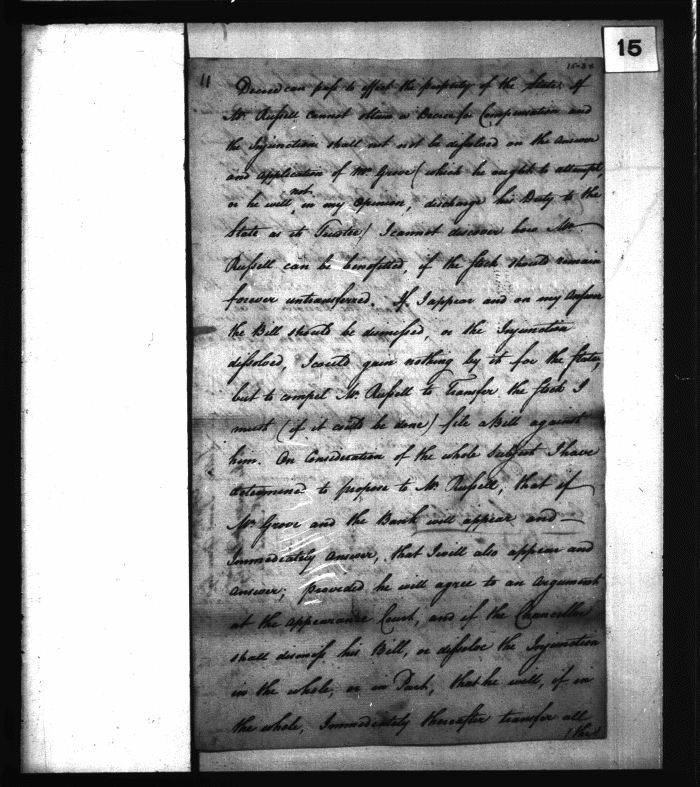 15
15-24
11
Decree can pass to affect the property of the State. If
Mr. Russell cannot obtain a Decree for Compensation and
the Injunction shall not be dissolved on the answer
and application of Mr Grove (which he ought to attempt,
or he will not, in my Opinion, discharge his Duty to the
State as its Trustee) I cannot discover how Mr
Russell can be benefitted, if the stock should remain
forever untransferred. If I appear and on my Answer
the Bill should be dismissed, or the Injunction
dissolved, I could gain nothing by it for the State,
but to compel Mr. Russell to Transfer the stock I
must (if it could be done) file a Bill against
him. On Consideration of the whole Subject I have
determined to propose to Mr. Russell, that if
Mr Grove and the Bank will appear and
Immediately answer, that I will also appear and
answer; provided he will agree to an Argument
at the appearance Court, and if the Chancellor
shall dismiss his Bill, or dissolve the Injunction
in the whole, or in Part, that he will, if in
the whole, Immediately thereafter transfer all
(the)